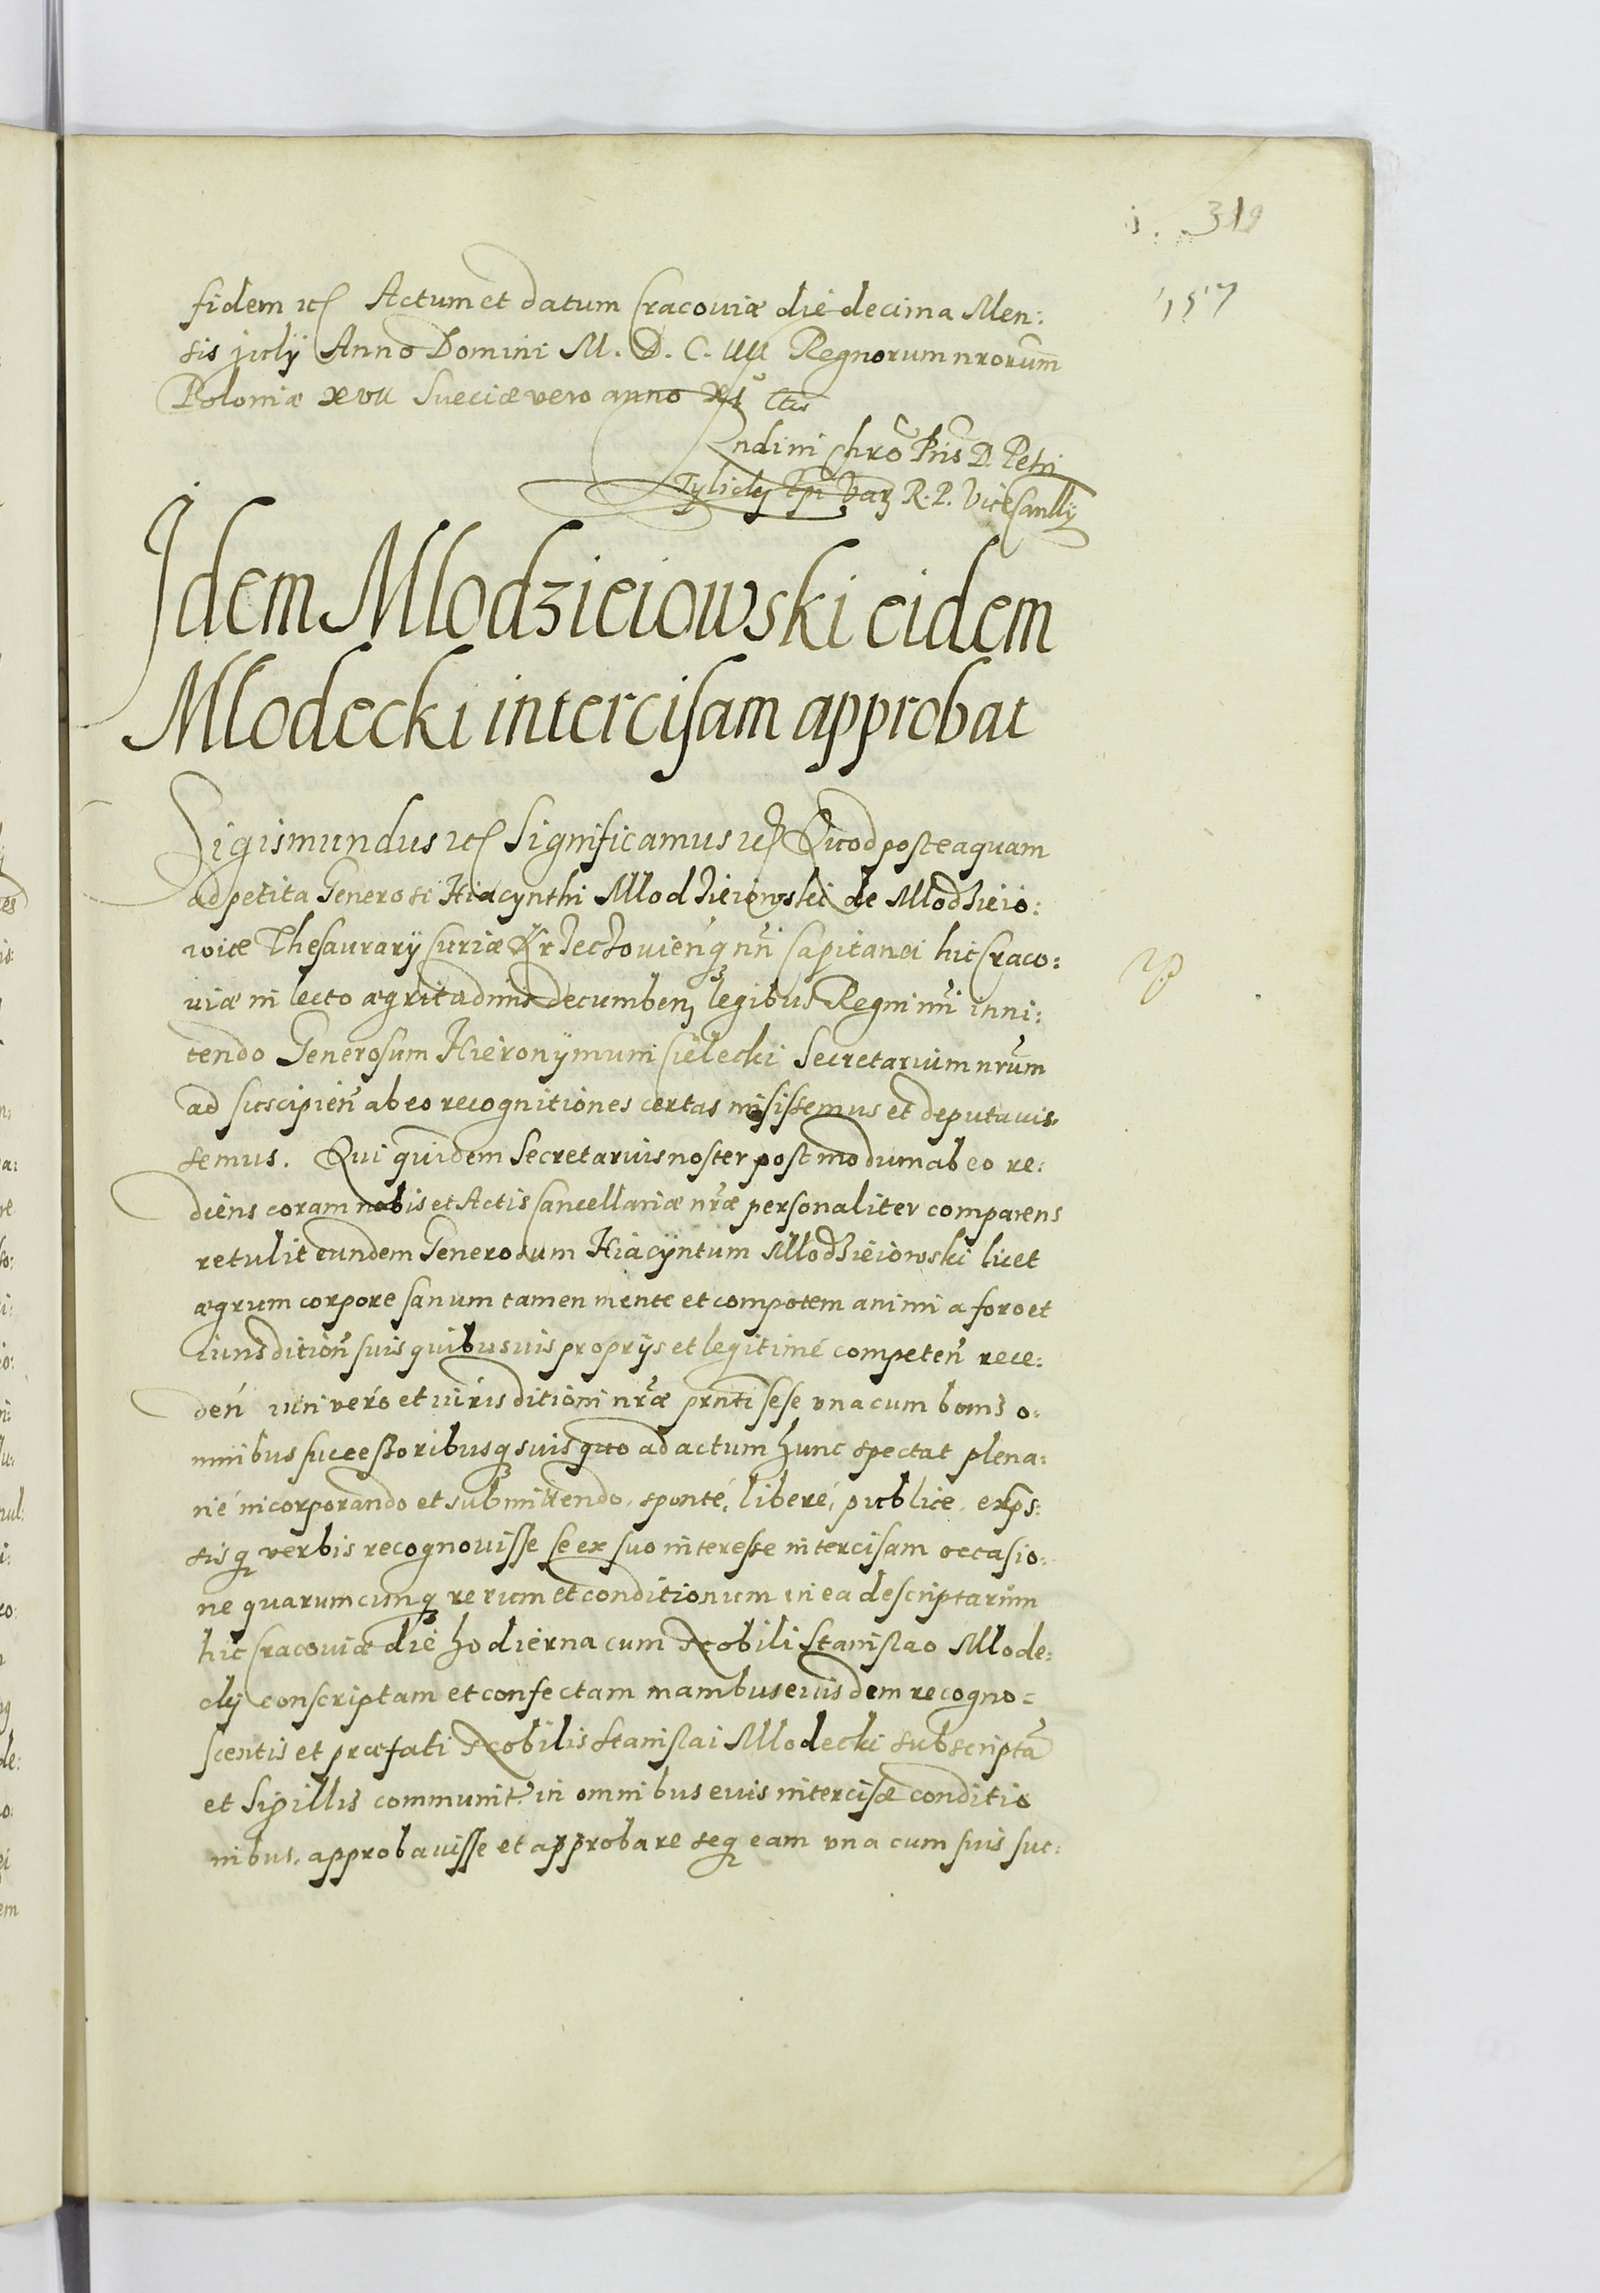 319
157
fidem etc Actum et datum Cracoviæ die decima Men:
sis julÿ Anno Domini M. D. C. IIII Regnorum nrorum
Poloniæ XVII Sueciæ vero anno XI etc
Rndi in Chro Pris D. Petri
Tylicky Epi Var R. P. Vice Canllÿ
Idem Mlodzieiowski eidem
Mlodecki intercisam approbat
Sigismundus etc Significamus etc Quod posteaquam
ad petita Generosi Hiacynthi Mlodzieiowski de Mlodzieio:
wice Thesaurarÿ Curiæ Krzeczovien q nri Capitanei hic Craco:
viæ in lecto ægritudinis decumben legibus Regni nri inni:
tendo Generosum Hieronÿmum Cielecki Secretarium nrum
ad suscipien ab eo recognitiones certas misissemus et deputavis:
semus. Qui quidem Secretarius noster postmodum ab eo re:
diens coram nobis et Actis Cancellariæ nræ personaliter comparens
retulit eundem Generosum Hiacÿntum Mlodzieiowski licet
ægrum corpore sanum tamen mente et compotem animi a foro et
iurisdition suis quibusvis proprÿs et legitimé competen rece:
den uni vero et iurisditioni nræ prnti sese una cum bonis o:
mnibus successoribusq suis quo ad actum hunc spectat plena:
rié incorporando et submittendo, sponté, liberé, publice, exps:
sisq verbis recognovisse se ex suo interesse intercisam occasio:
ne quarumcunq rerum et conditionum in ea descriptarum
hic Cracoviæ die hodierna cum Nobili Stanislao Mlode:
cky conscriptam et confectam manibus eiusdem recogno:
scentis et præfati Nobilis Stanislai Mlodecki subscriptã
et Sigillis communit. in omnibus eius intercisæ conditio
nibus, approbavisse et approbare seq eam una cum suis suc: